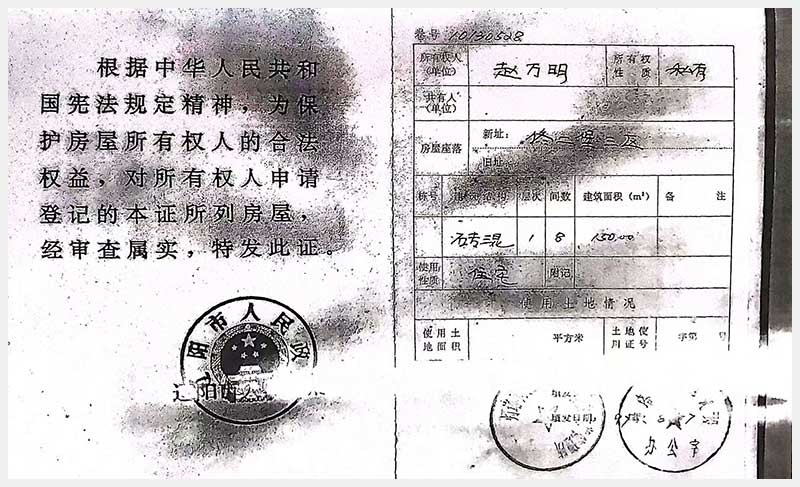 根据中华人民共和
国宪法规定精神，为保
护房屋所有权人的合法
权益，对所有权人申请
登记的本证所列房屋，
经审查属实，特发此证。
阳市人民政
卷号 10130528
所有权人(单位) 赵万明 所有权性质 私有
共有人(单位)
房屋座落 新址：
旧址
栋号 结构 层次 间数 建筑面积（m²） 备 注
砖混 1 8 150.00
使用性质 住宅 附记
使用土地情况
使用土地面积 平方米 土地使用证号 字第 号
填发日期：